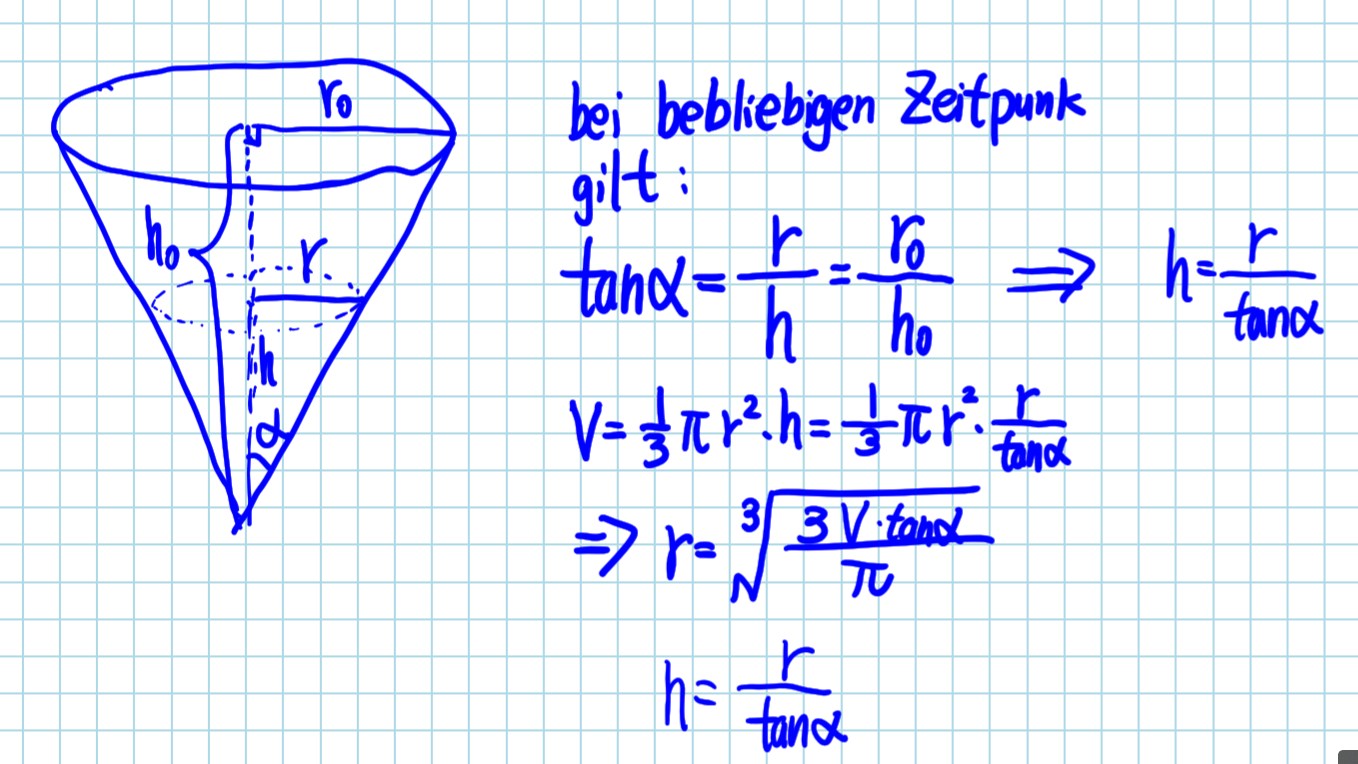 r₀
h₀
r
h
α
bei bebliebigen Zeitpunk
gilt:
tanα = r/h = r₀/h₀ ⇒ h = r/tanα
V = 1/3 π r² · h = 1/3 π r² · r/tanα
⇒ r = ∛(3V·tanα/π)
h = r/tanα